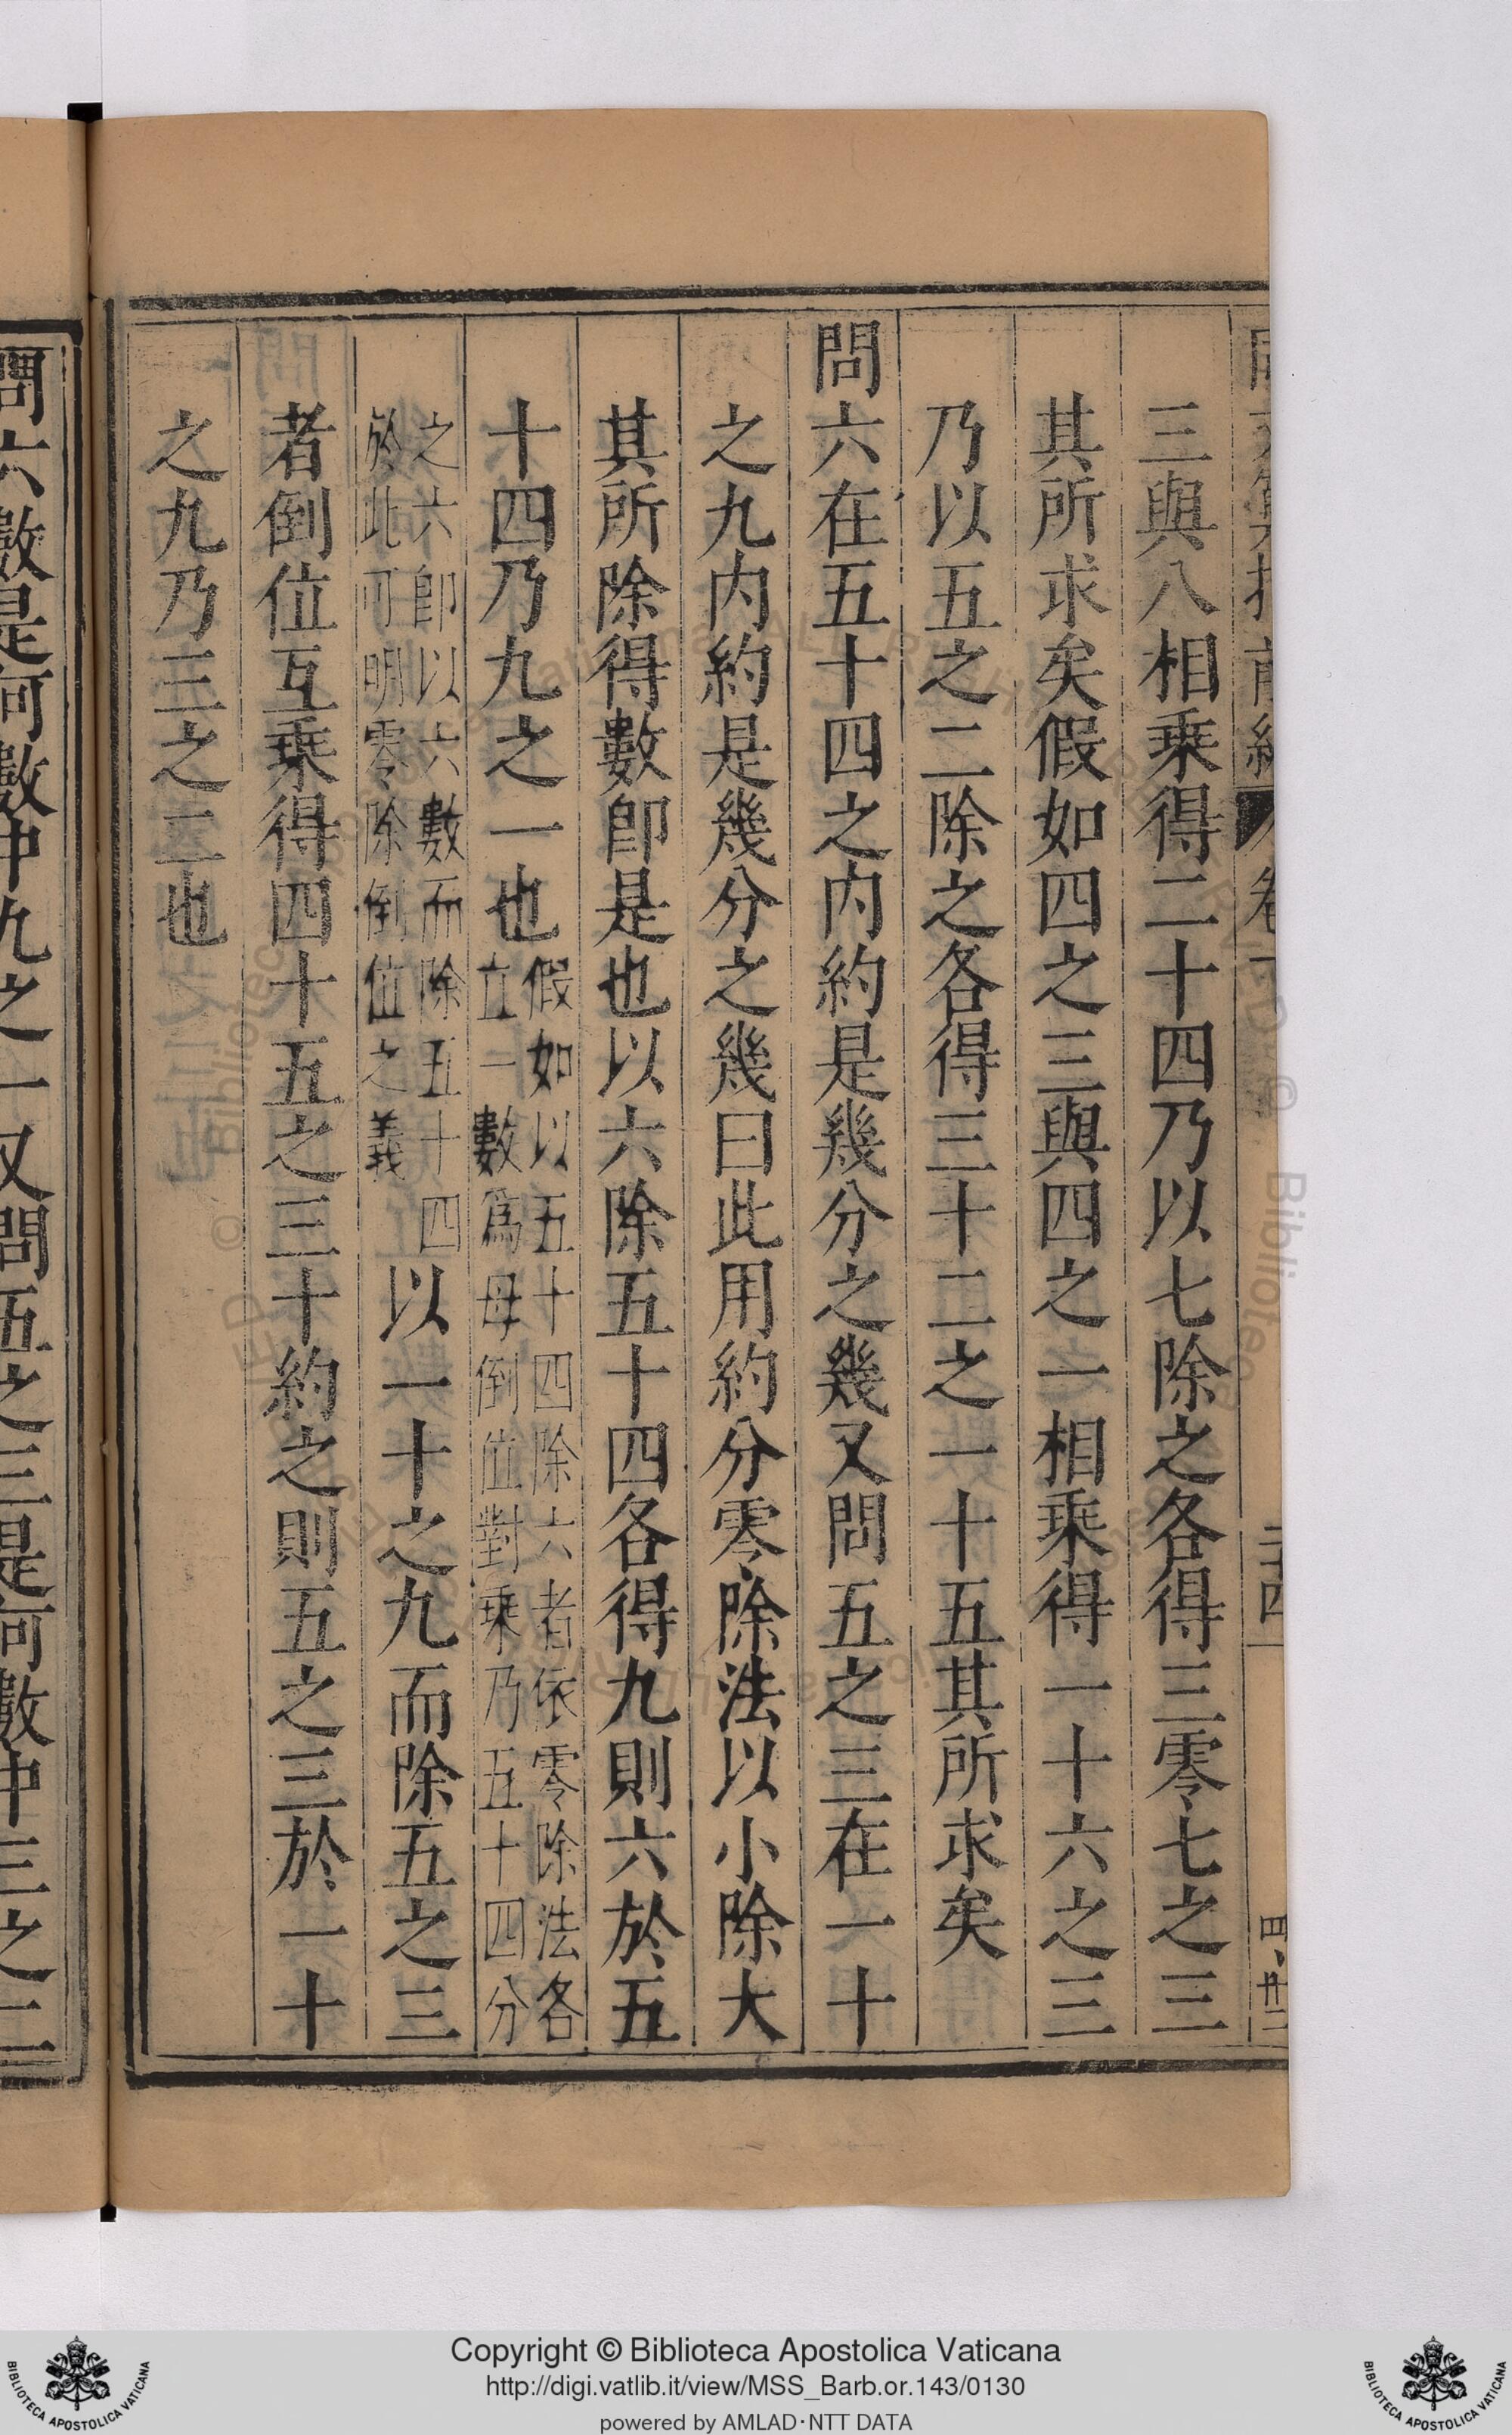 三與八相乗得二十四乃以七除之各得三零七之三
其所求矣假如四之三與四之一相乗得一十六之三
乃以五之二除之各得三十二之一十五其所求矣
問六在五十四之内約是幾分之幾又問五之三在一十
之九内約是幾分之幾曰此用約分零除法以小除大
其所除得數即是也以六除五十四各得九則六於五
十四乃九之一也
假如以五十四除六者依零除法各
立一數爲母倒位對乗乃五十四分
之六即以六數而除五十四
於此可明零除倒位之義
以一十之九而除五之三
者倒位互乗得四十五之三十約之則五之三於一十
之九乃三之二也
卷下
二十四
問六數是何數中九之一又問五之三是何數中三之二
Copyright © Biblioteca Apostolica Vaticana
http://digi.vatlib.it/view/MSS_Barb.or.143/0130
powered by AMLAD·NTT DATA
BIBLIOTECA APOSTOLICA VATICANA
BIBLIOTECA APOSTOLICA VATICANA